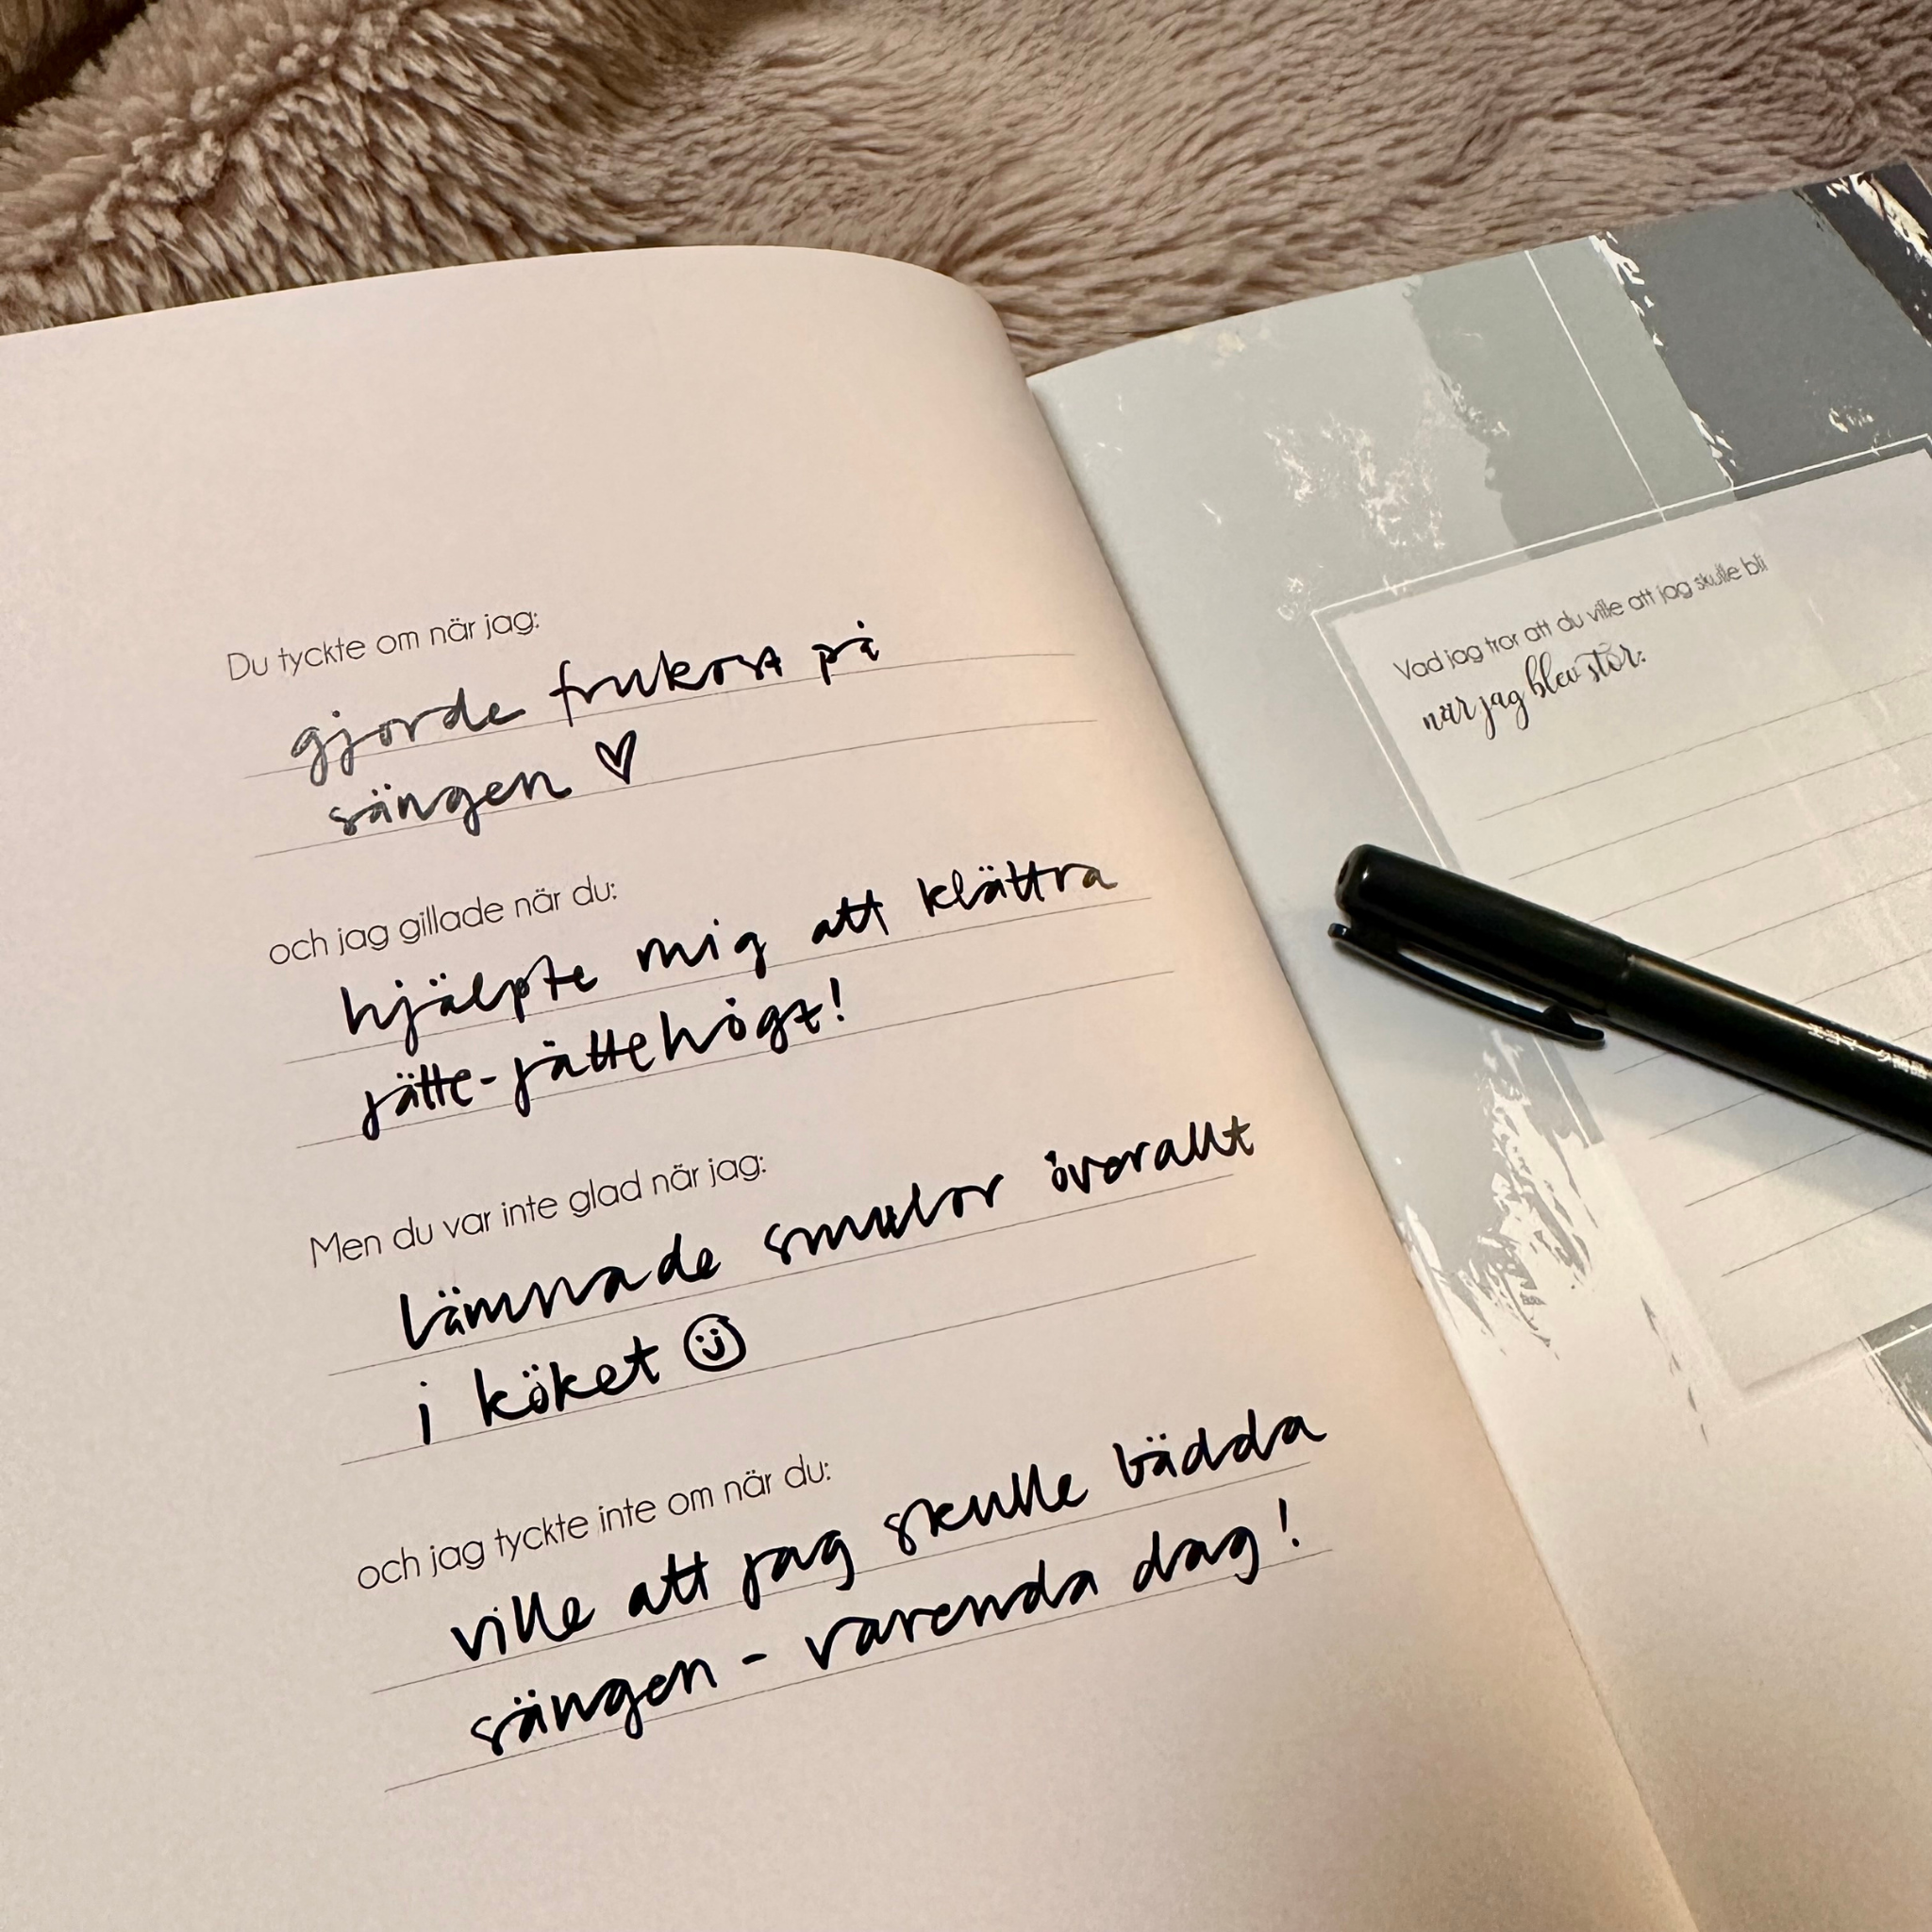 Du tyckte om när jag:
gjorde frukost på
sängen ♡
och jag gillade när du:
hjälpte mig att klättra
jätte-jättehögt!
Men du var inte glad när jag:
lämnade smulor överallt
i köket ☺
och jag tyckte inte om när du:
ville att jag skulle bädda
sängen - varenda dag!
Vad jag tror att du ville att jag skulle bli
när jag blev stor:
エコマーク商品